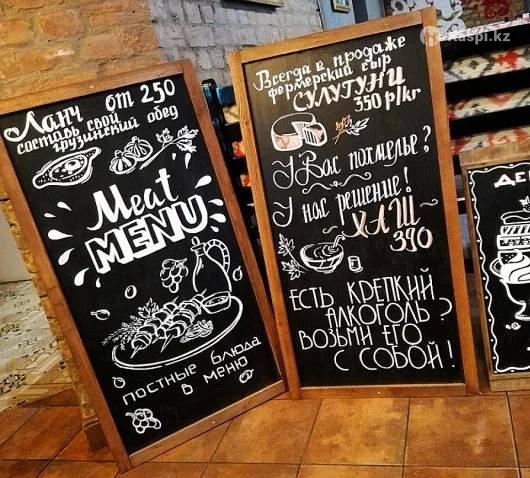 Kaspi.kz
Ланч от 250
составь свой
грузинский обед
Meat
MENU
постные блюда
в меню
Всегда в продаже
фермерский сыр
СУЛУГУНИ
350 р/кг
У Вас похмелье?
У нас решение!
ХАШ
390
ЕСТЬ КРЕПКИЙ
АЛКОГОЛЬ?
ВОЗЬМИ ЕГО
С СОБОЙ!
ДЕ